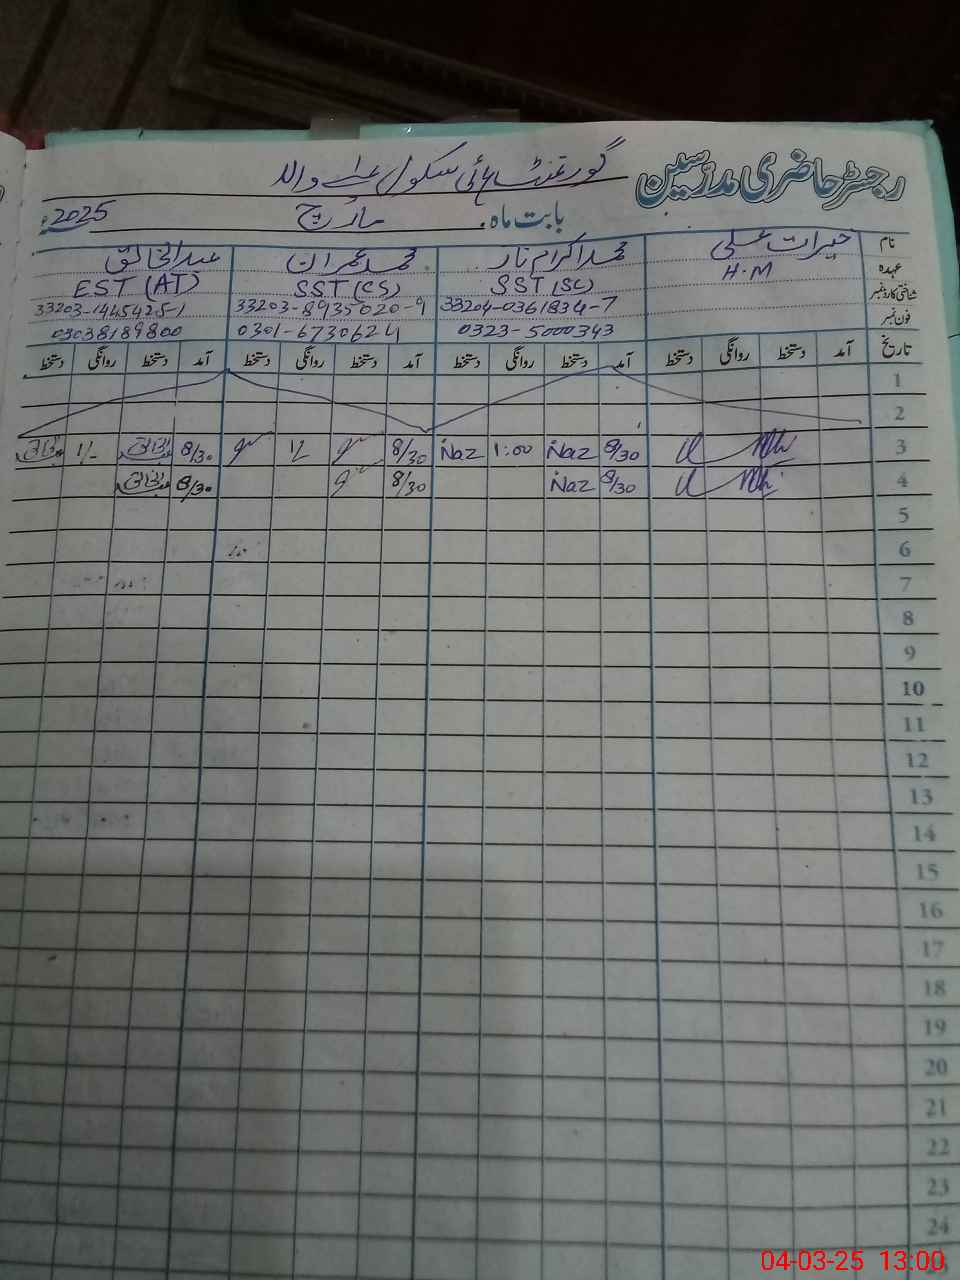 رجسٹر حاضری مدرسین گورنمنٹ ہائی سکول والہ
بابت ماہ مارچ 2025ء
نام خیرات علی محمد اکرام ناز محمد عمران عبدالخالق
عہدہ H.M SST (SC) SST (CS) EST (AT)
شناختی کارڈ نمبر 33204-0361834-7 33203-8935020-9 33203-1445425-1
فون نمبر 0323-5000343 0301-6730624 03038189800
تاریخ آمد دستخط روانگی دستخط آمد دستخط روانگی دستخط آمد دستخط روانگی دستخط آمد دستخط روانگی دستخط
1
2
3 8/30 Naz 1:00 Naz 8/30 1/ 8/30 1/-
4 8/30 Naz 8/30 8/30
5
6
7
8
9
10
11
12
13
14
15
16
17
18
19
20
21
22
23
24
04-03-25 13:00